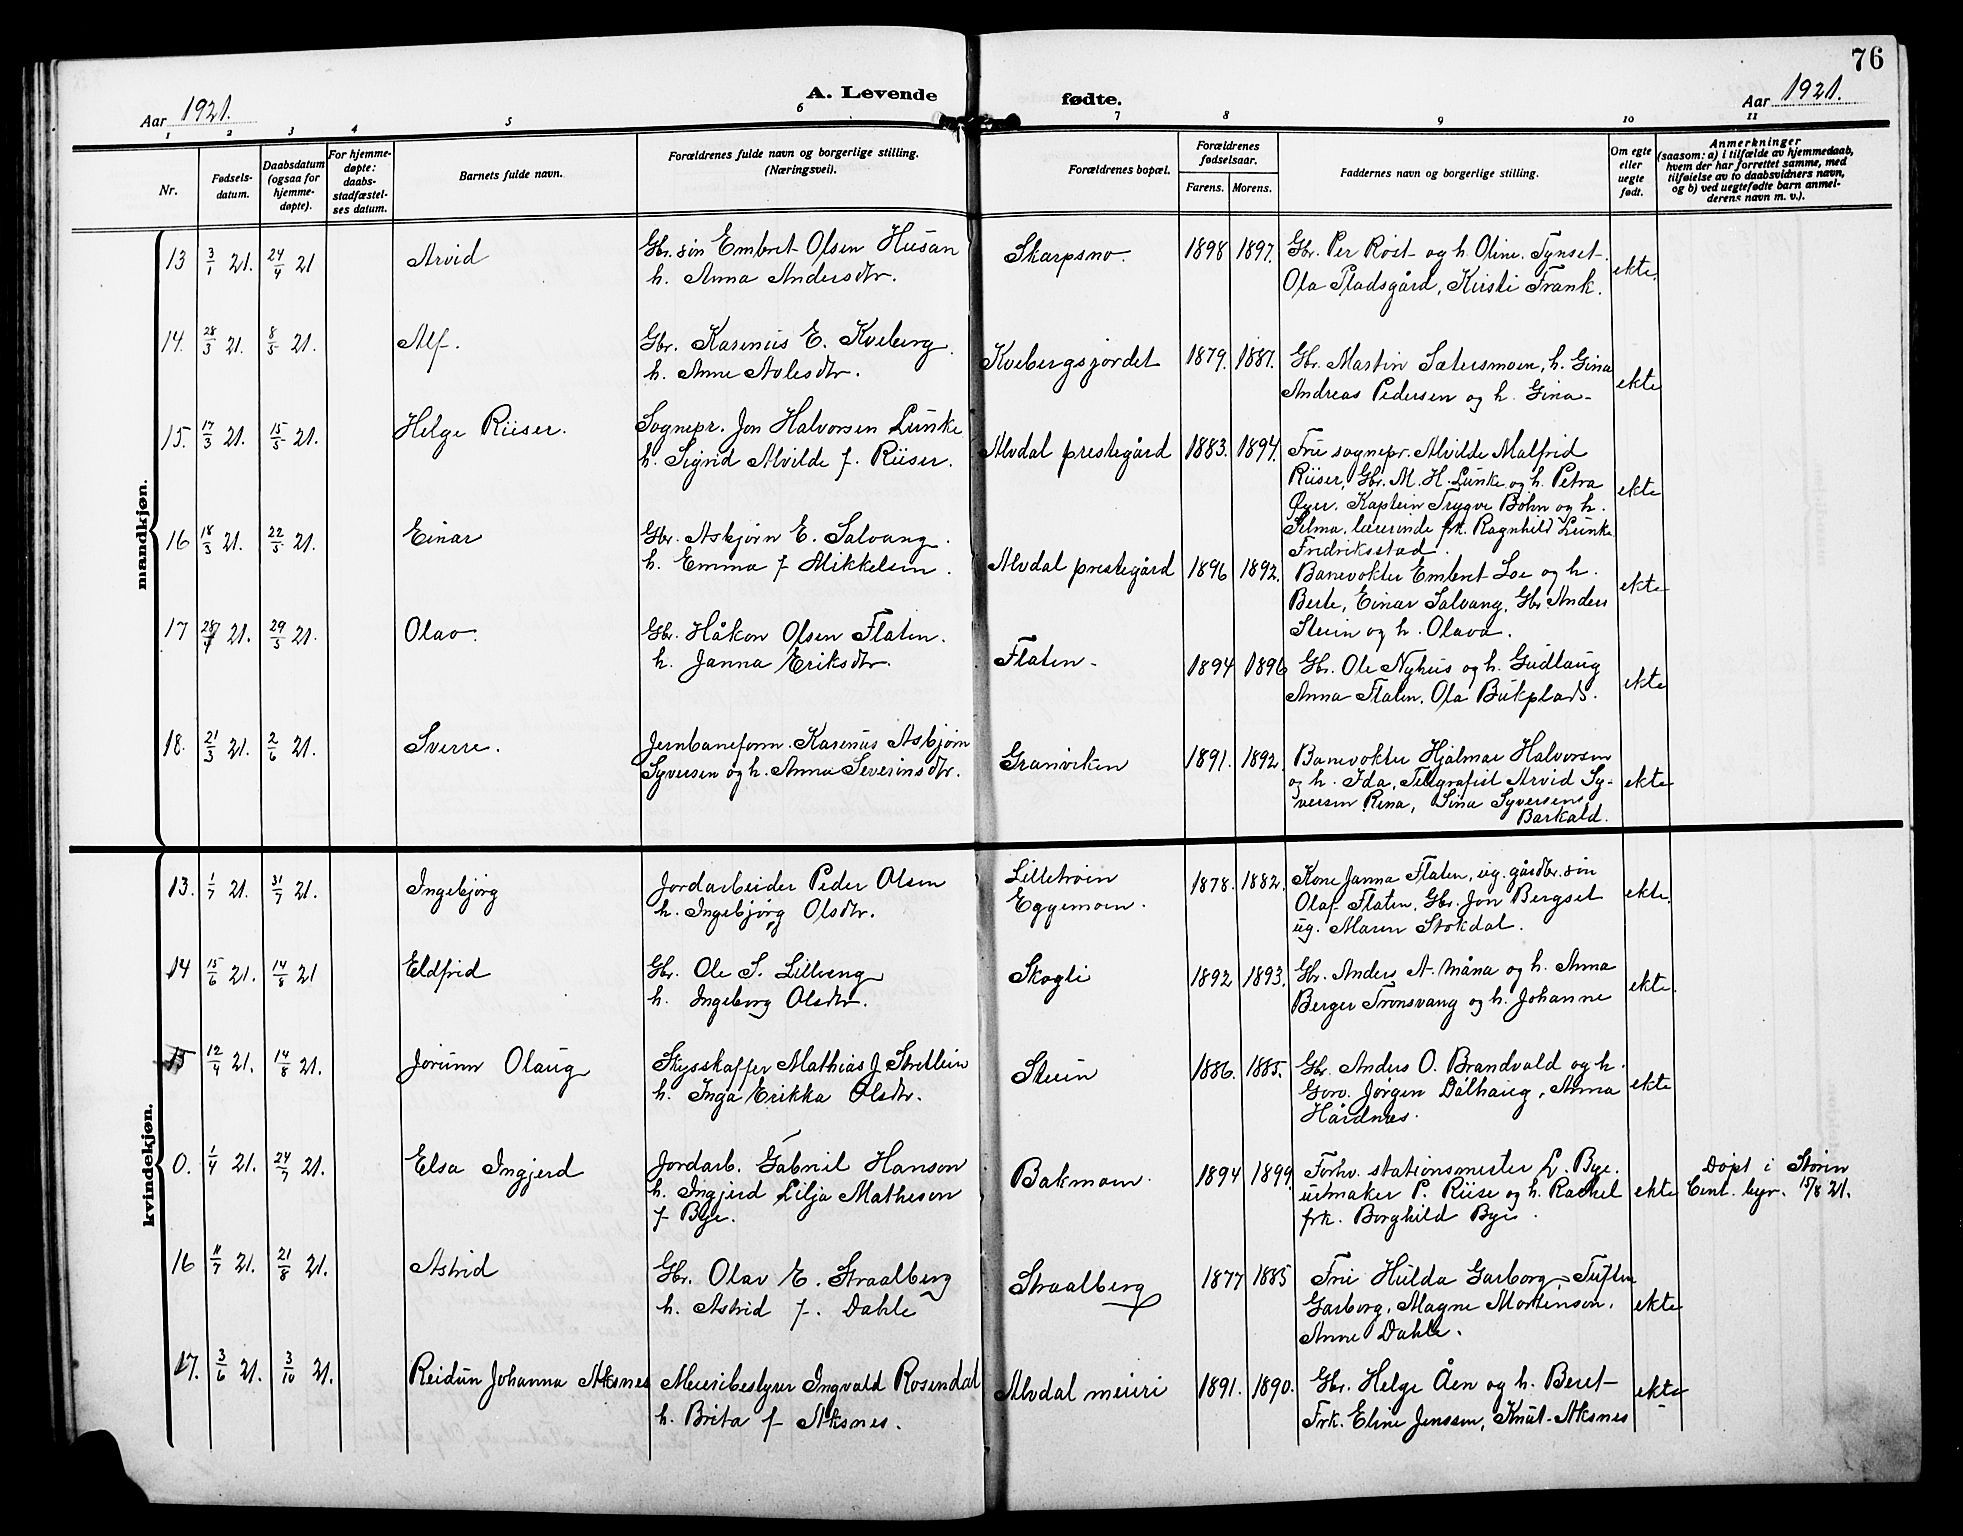 76
Aar 1921.
A. Levende fødte.
Aar 1921.
1 2 3 4 5 6 7 8 9 10 11
Nr.
Fødsels-
datum.
Daabsdatum
(ogsaa for
hjemme-
døpte).
For hjemme-
døpte:
daabs-
stadfæstel-
ses datum.
Barnets fulde navn.
Forældrenes fulde navn og borgerlige stilling.
(Næringsvei).
Forældrenes bopæl.
Forældrenes
fødselsaar.
Farens. Morens.
Faddernes navn og borgerlige stilling.
Om egte
eller
uegte
født.
Anmerkninger
(saasom: a) i tilfælde av hjemmedaab,
hvem der har forrettet samme, med
tilføielse av to daabsvidners navn,
og b) ved uegtefødte barn anmel-
derens navn m. v.).
mandkjøn.
13 3/1 21. 24/4 21 Arvid
Gbr. søn Embret Olsen Husan
h. Anna Andersdtr.
Skarpsno. 1898 1897.
Gbr. Per Röst og h. Oline. Tynset.
Ola Pladsgård, Kirsti Frank.
ekte.
14. 28/3 21. 8/5 21. Alf.
Gbr. Karenius E. Kveberg.
h. Anne Avlesdtr.
Kvebergsjordet 1879. 1887.
Gbr. Martin Sætersmoen, h. Gina
Andreas Pedersen og h. Gina-
ekte
15. 17/3 21. 15/5 21. Helge Riiser.
Sognepr. Jon Halvorsen Lunke
h. Sigrid Alvilde f. Riiser.
Alvdal prestegård 1883. 1894.
Fru sognepr. Alvilde Malfrid
Riiser, Gbr. M. H. Lunke og h. Petra
Øyer. Kaptein Trygve Bohn og h.
Selma, lærerinde frk. Ragnhild Lunke
Fredriksstad.
ekte
16 18/3 21. 22/5 21. Einar
Gbr. Asbjørn E. Salvang.
h. Emma f Mikkelsen.
Alvdal prestegård 1896 1892.
Banevokter Embret Loe og h.
Berte, Einar Salvang, Gbr Anders
Steien og h. Olava.
ekte
17 28/4 21. 29/5 21. Olav.
Gbr. Håkon Olsen Flaten.
h. Janna Eriksdtr.
Flaten- 1894 1896
Gbr. Ole Nyhus og h. Gudlaug
Anna Flaten, Ola Bukplads.
ekte
18. 21/3 21. 2/6 21. Sverre.
Jernbaneform. Karenius Asbjørn
Syversen og h. Anna Severinsdtr.
Granviken 1891. 1892.
Banevokter Hjalmar Halvorsen
og h. Ida, Telegrafist Arvid Sy-
versen Rena, Sina Syversens
Barkald.
ekte
kvindekjøn.
13. 1/7 21. 31/7 21. Ingebjørg
Jordarbeider Peder Olsen
h. Ingebjørg Olsdtr.
Lilletrøen
Eggemoen. 1878. 1882.
Kone Janna Flaten, ug. gårdbr. søn
Olaf Flaten, Gbr. Jon Bergset
ug. Maren Stokdal.
ekte.
14 15/6 21. 14/8 21 Eldfrid
Gbr. Ole S. Lilleeng
h. Ingeborg Olsdtr.
Skogli 1892 1893.
Gbr. Anders A. Måna og h. Anna
Berger Tronsvang og h. Johanne
ekte.
15 12/4 21. 14/8 21. Jorunn Olaug
Skysskaffer Mathias J. Strellein
h. Inga Erikka Olsdtr.
Steien 1886. 1885.
Gbr. Anders O. Brandvald og h.
Goro. Jørgen Dølhaug, Anna
Hårdnes.
ekte
0. 1/4 21. 24/7 21. Elsa Ingjerd
Jordarb. Gabriel Hanson
h. Ingjerd Lilja Matheson
f. Bye.
Bakmoen. 1894 1899.
Forhv. stationsmester L. Bye.
urmaker P. Riise og h. Rachel
frk. Borghild Bye.
ekte
Døpt i Støren
15/8 21.
16 11/7 21. 21/8 21. Astrid
Gbr. Olav E. Straalberg
h. Astrid f. Dahle
Straalberg 1877 1885
Fru Hulda Garborg, Tuften
Garborg, Magne Mortenson.
Anne Dahle.
ekte
17. 3/6 21. 3/10 21. Reidun Johanna Aksnes
Meieribestyrer Ingvald Rosendal
h. Brita f Aksnes.
Alvdal meieri 1891. 1890.
Gbr. Helge Åen og h. Beret-
Frk. Eline Jenssen, Knut Aksnes
ekte